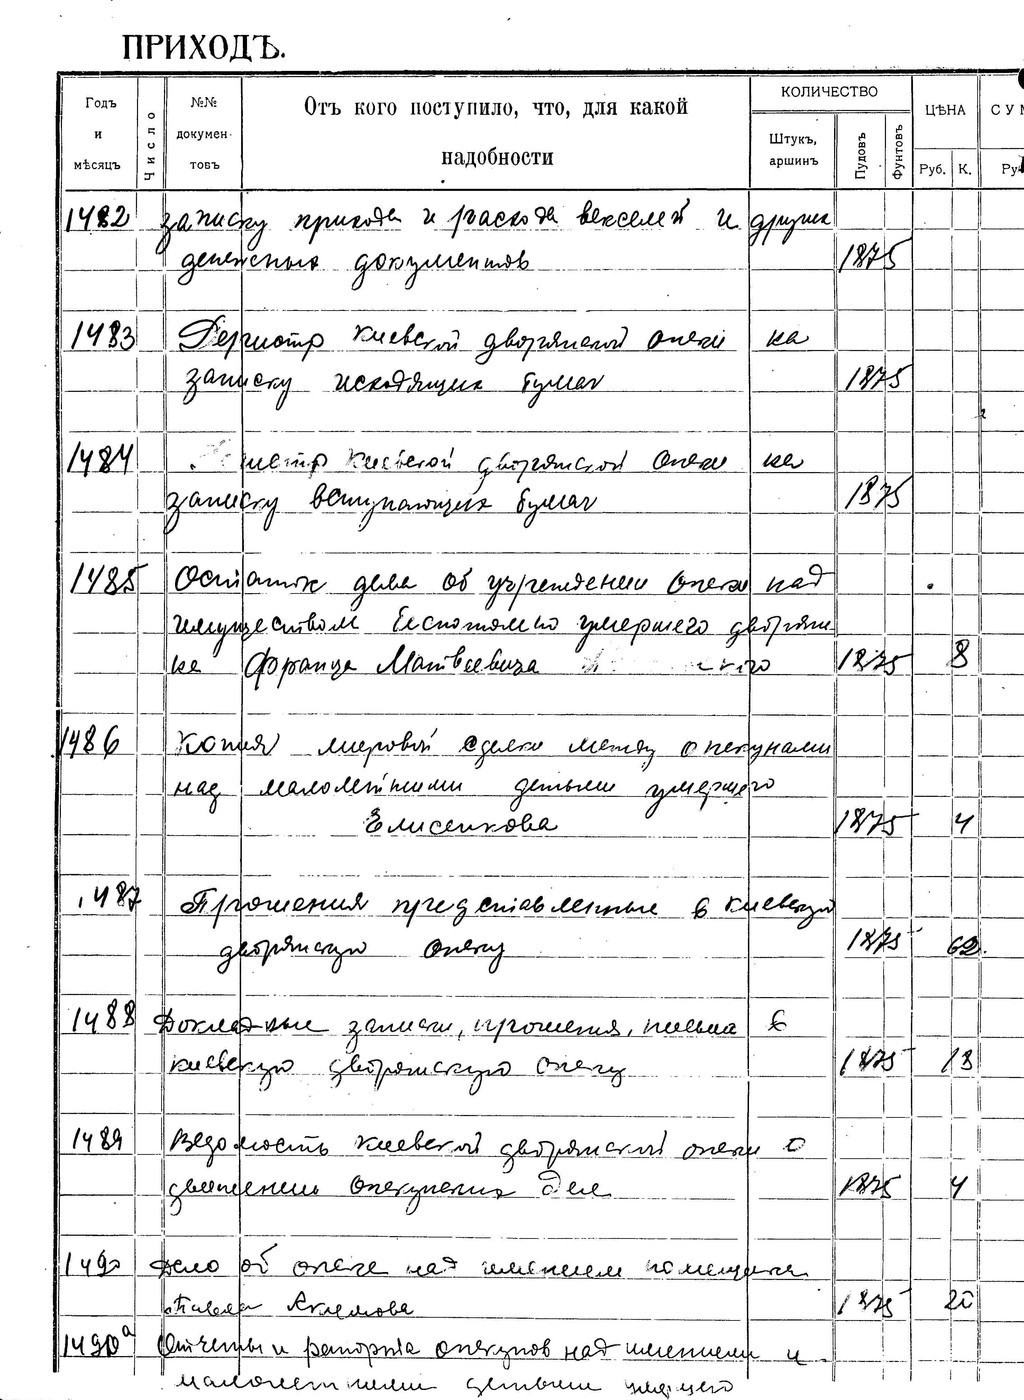 ПРИХОДЪ.
Годъ и мѣсяцъ
Число
№№ докумен- товъ
Отъ кого поступило, что, для какой надобности
КОЛИЧЕСТВО
Штукъ, аршинъ
Пудовъ
Фунтовъ
ЦѢНА
Руб. К.
СУМ
Ру
1482 записку прихода и расхода векселей и других
денежных документов 1875
1483 Регистр Киевской дворянской опеки на
записку исходящих бумаг 1875
1484 истр Киевской дворянской опеки на
записку вступающих бумаг 1875
1485 Остаток дела об учреждении опеки над
имуществом беспотомно умершего дворяни
на Франца Матвеевича ского 1875 8
1486 Копия мировой сделки между опекунами
над малолетними детьми умершего
Елисенкова 1875 4
1487 Прошения представленные в Киевскую
дворянскую опеку 1875 62
1488 Докладные записки, прошения, письма в
киевскую дворянскую опеку 1875 13
1489 Ведомость Киевской дворянской опеки о
движении опекунских дел 1875 4
1490 Дело об опеке над имением помещика
Павла Акимова 1875 20
1490а Отчеты и рапорта опекунов над имением и
малолетними детьми умершего